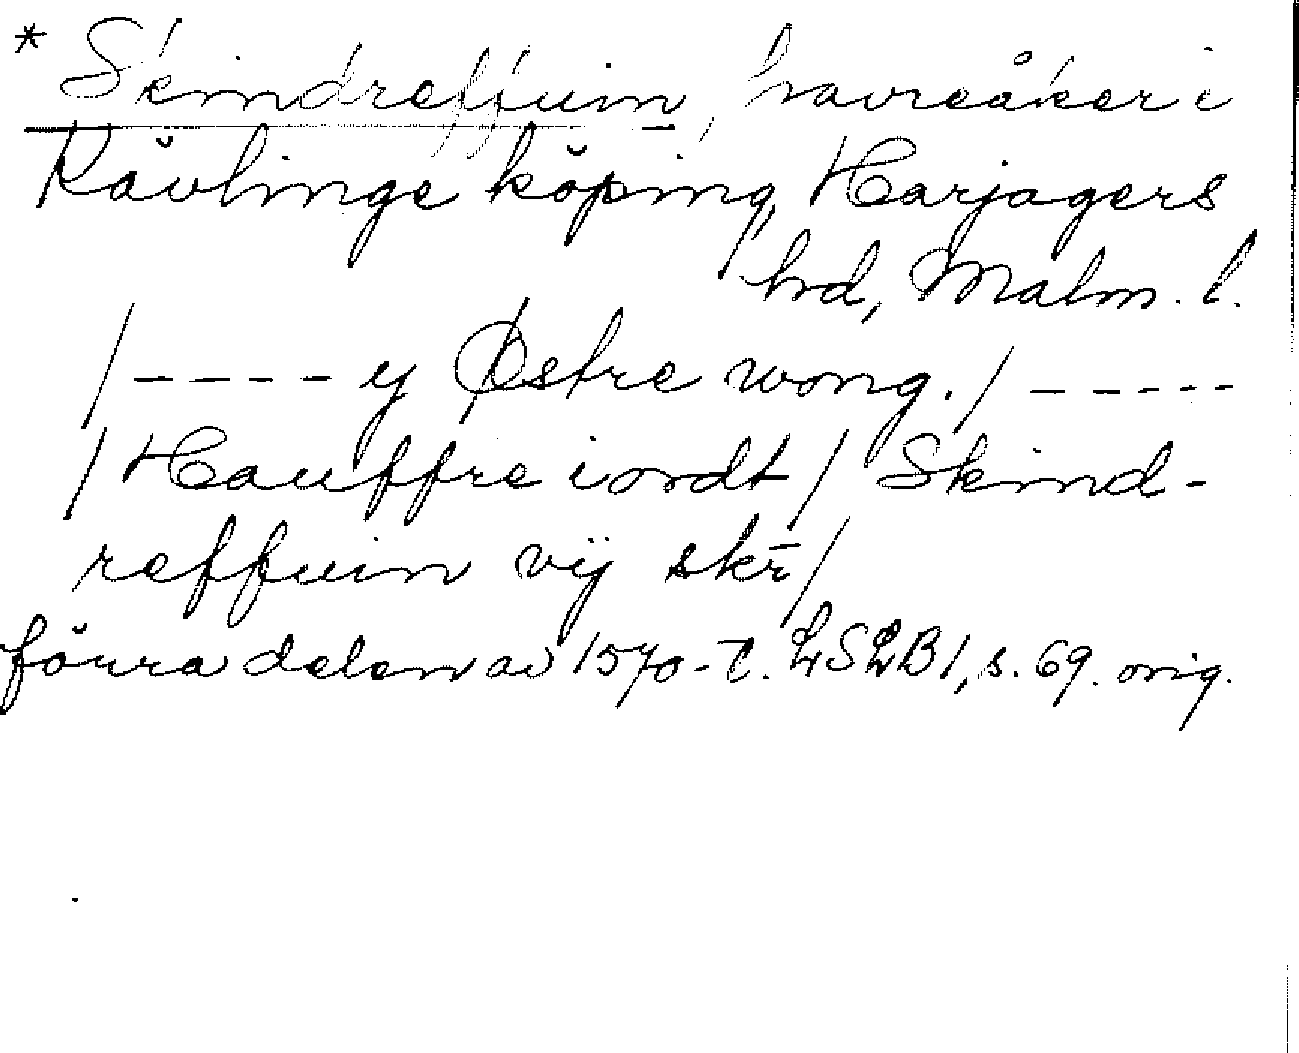 * Skindreffuin, havreåker i
Kävlinge köping, Harjagers
hrd, Malm. l.
/ - - - - y Østre wong. / - - - - -
/ Hauffre iordt / Skind-
reffuin vij skr̄ /
förra delen av 1570-t. LSLB 1, s. 69. orig.